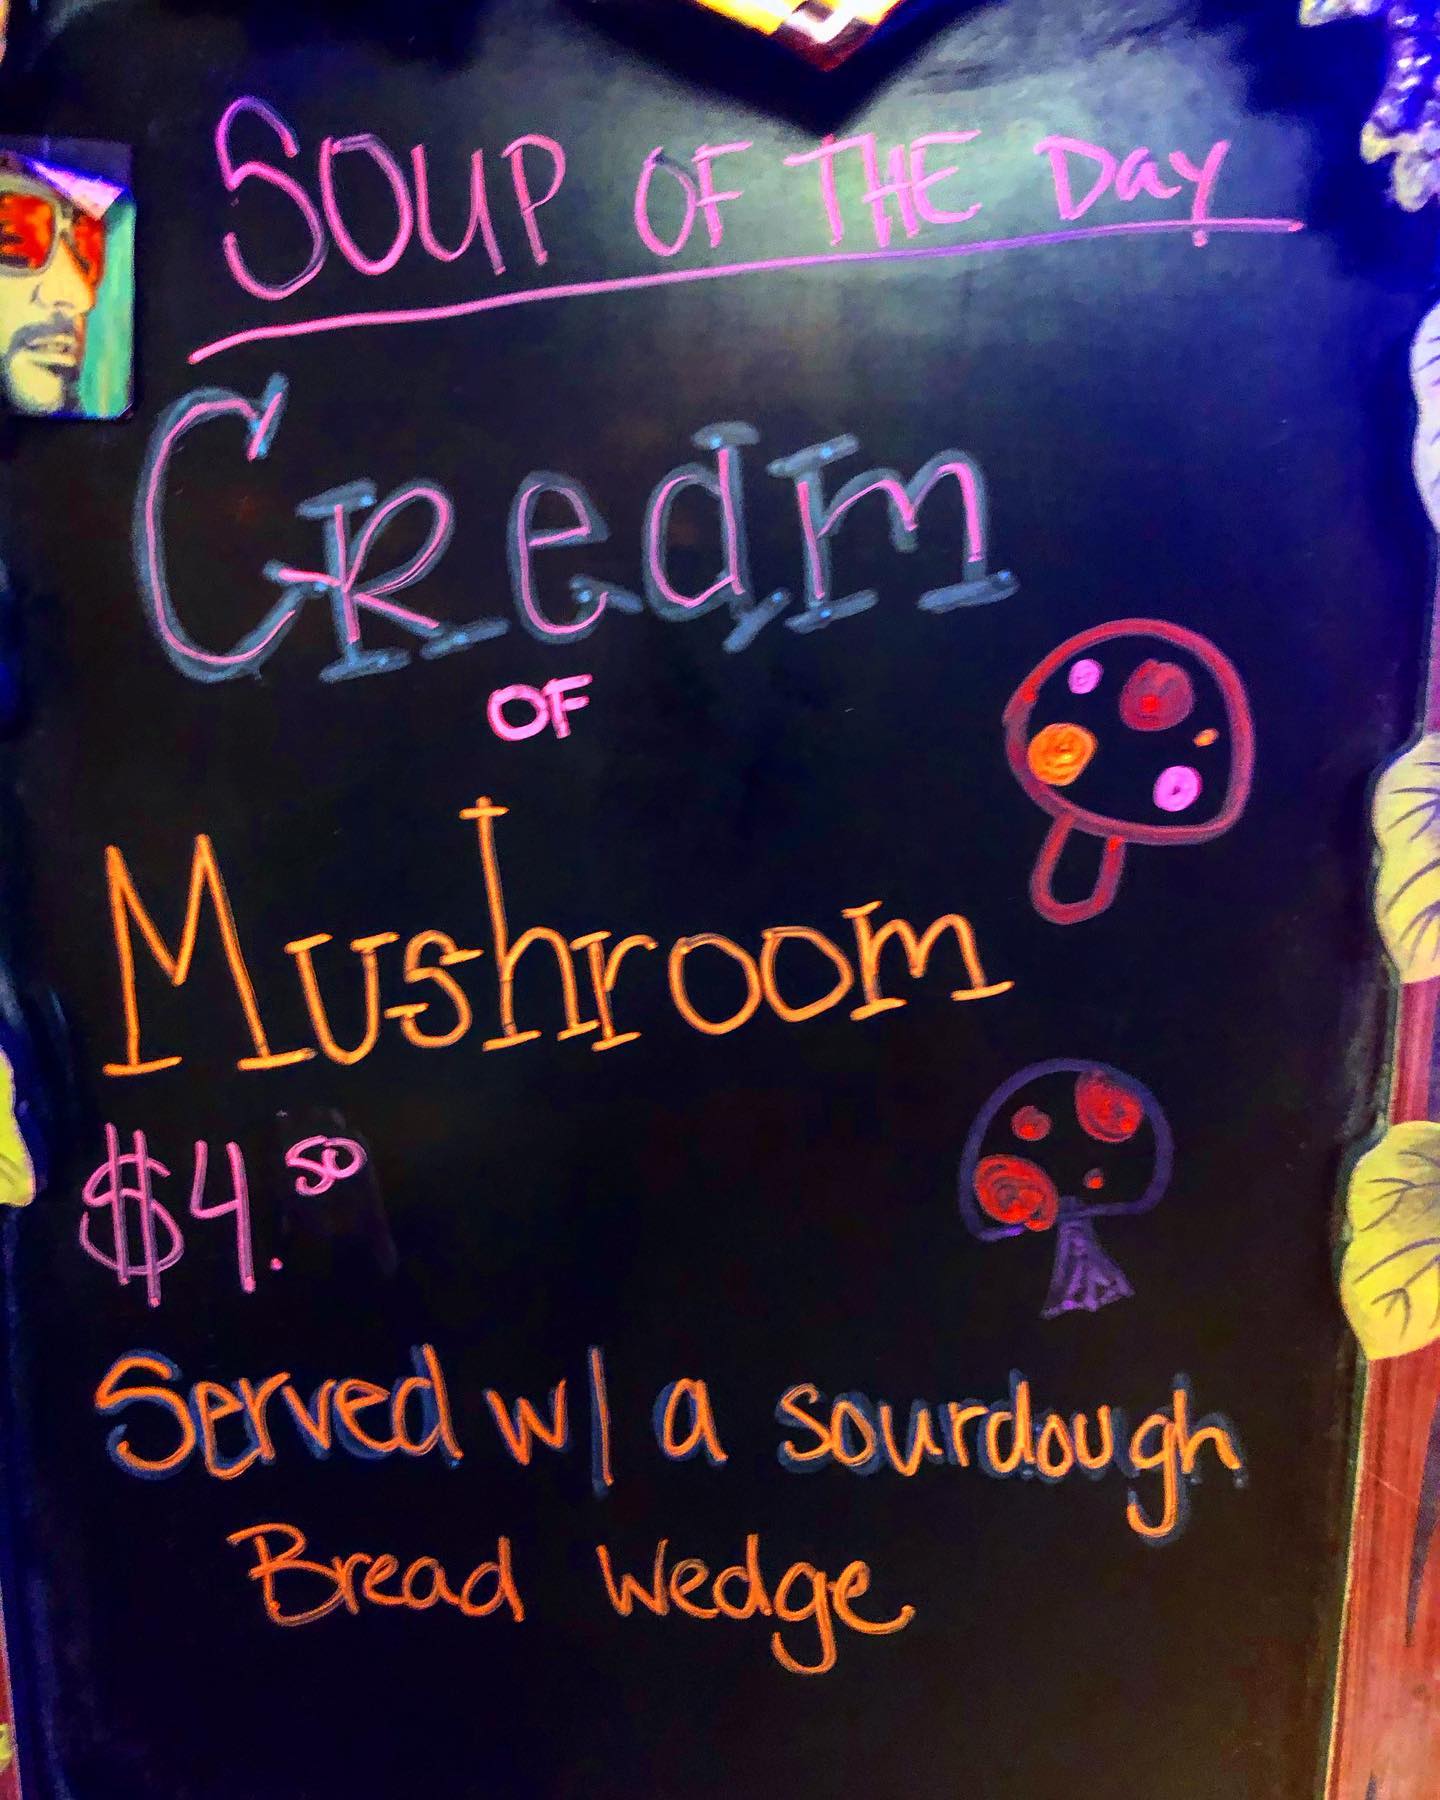 SOUP OF THE Day
Cream
OF
Mushroom
$4.50
Served w/ a sourdough
Bread Wedge